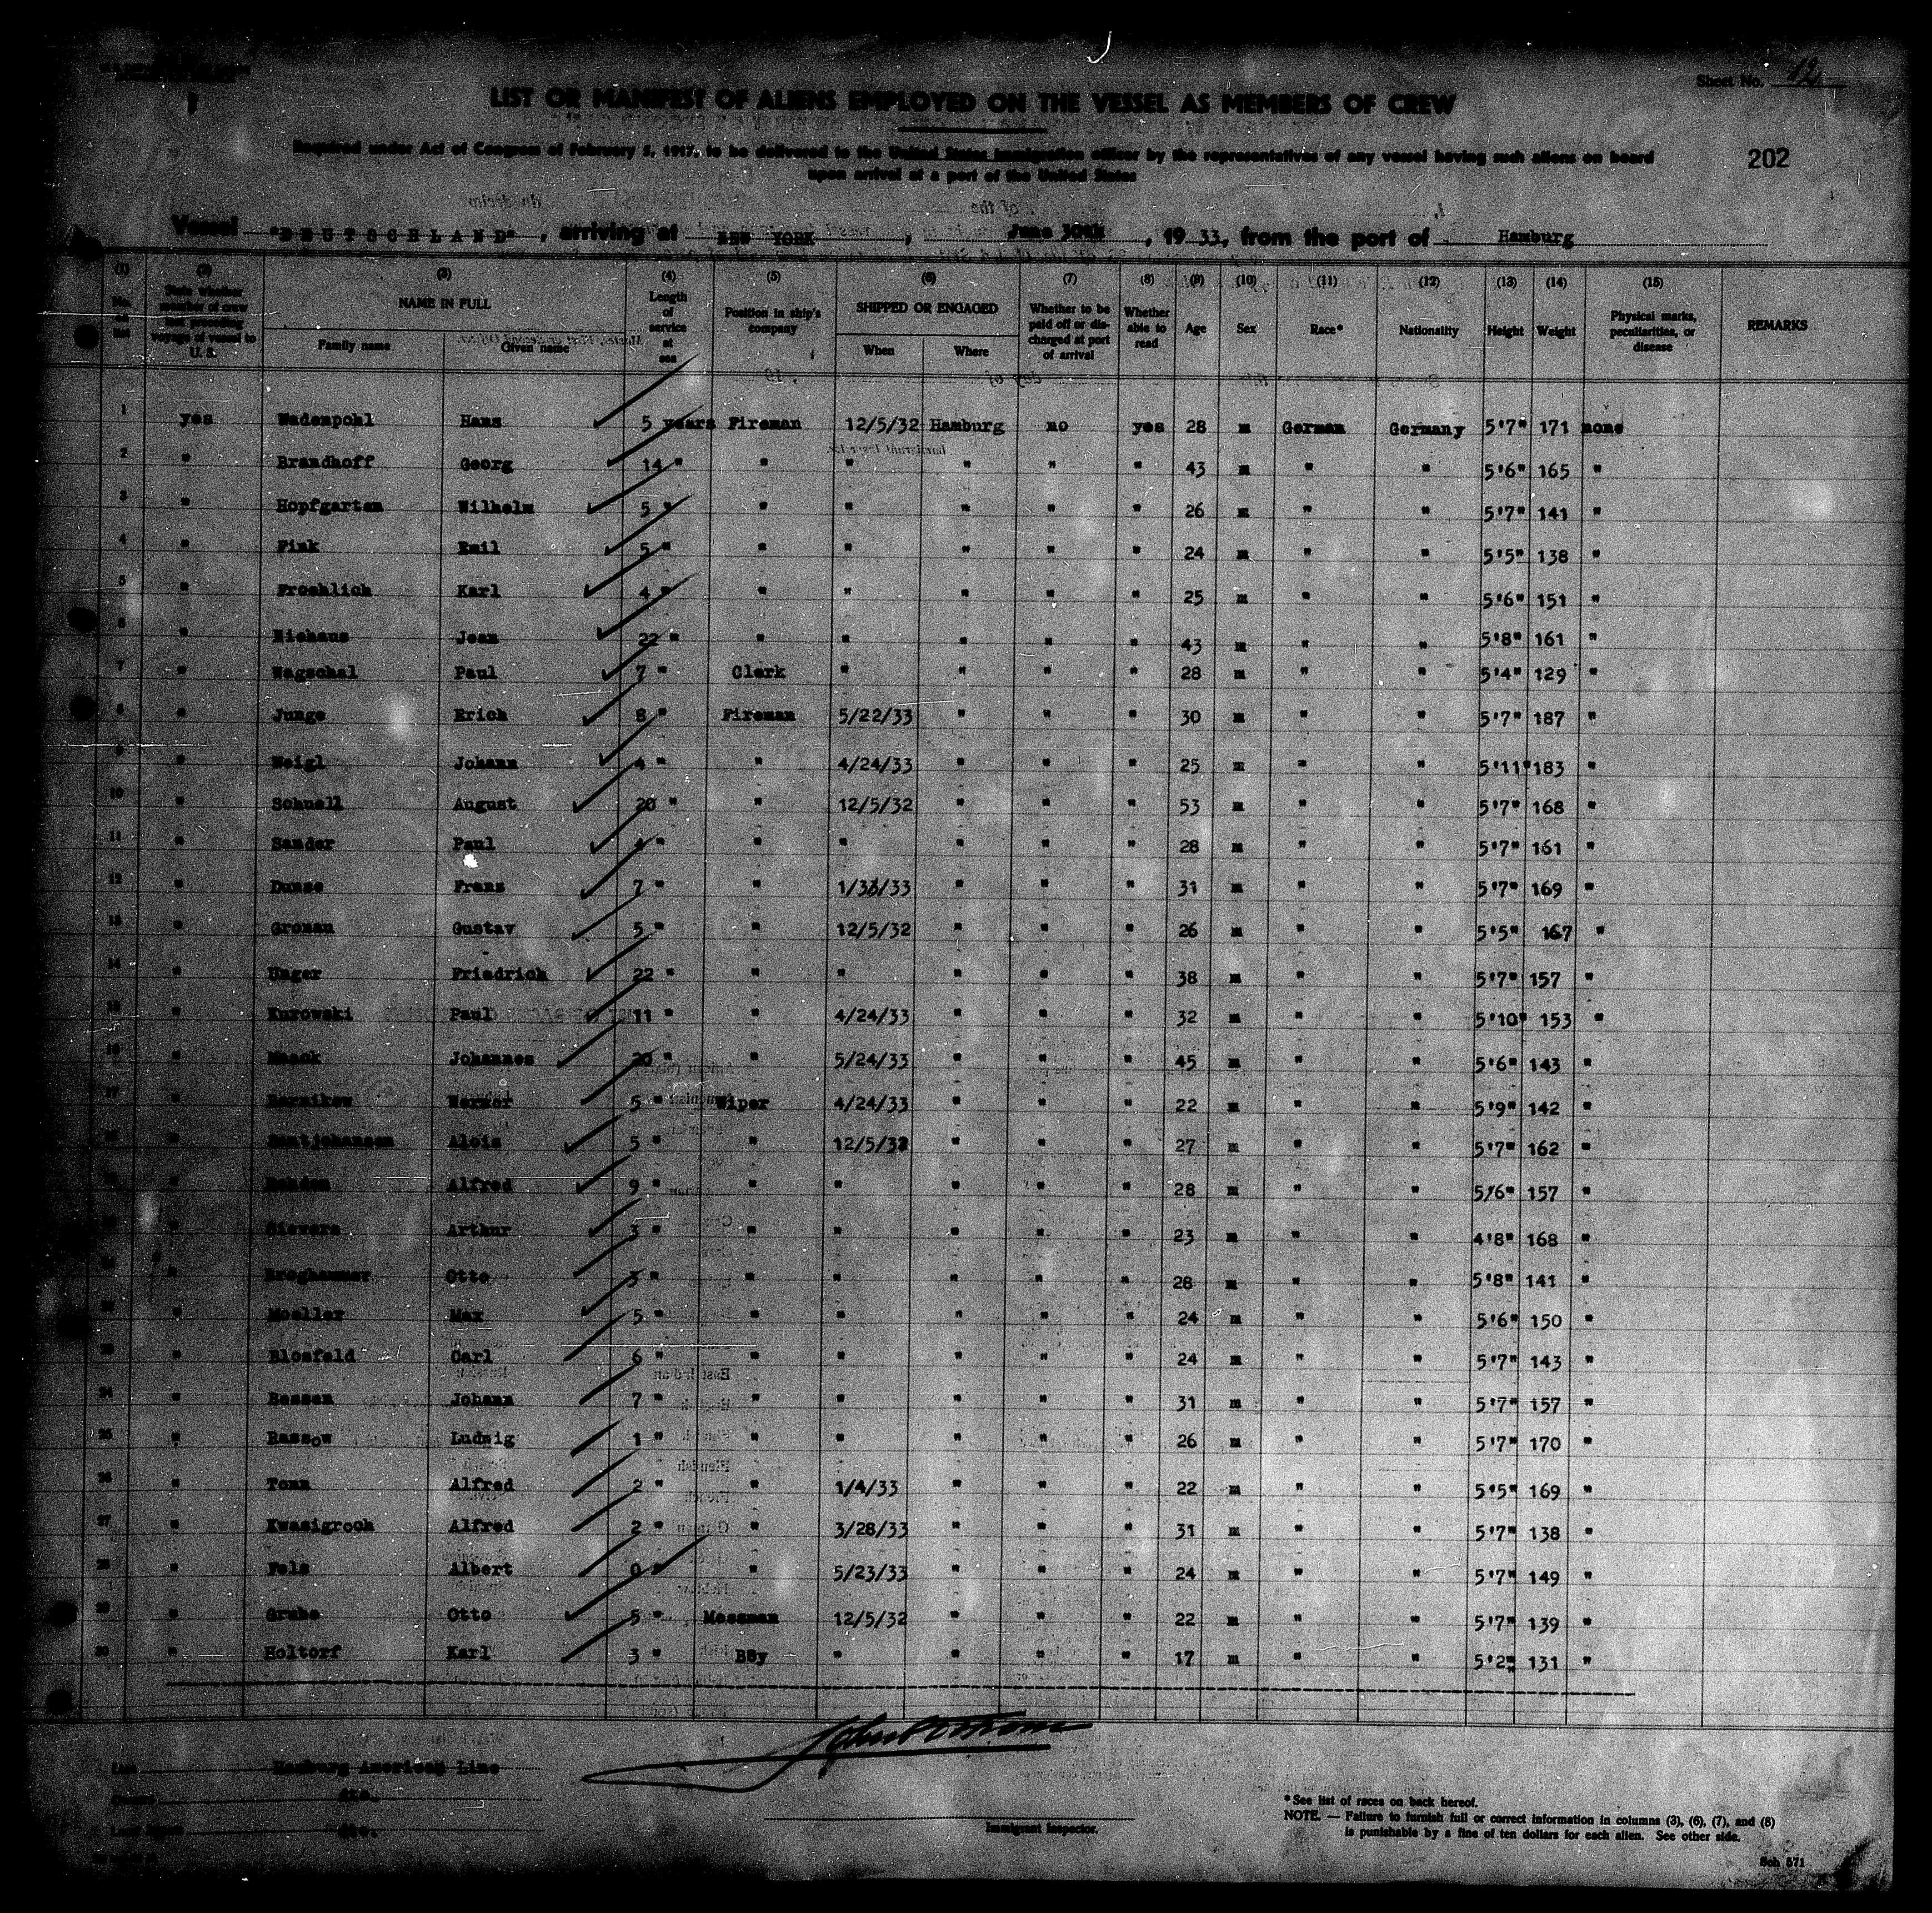 Sheet No. 12
LIST OR MANIFEST OF ALIENS EMPLOYED ON THE VESSEL AS MEMBERS OF CREW
Required under Act of Congress of February 5, 1917, to be delivered to the United States Immigration officer by the representatives of any vessel having such aliens on board
upon arrival at a port of the United States
202
Vessel "DEUTSCHLAND", arriving at NEW YORK, June 30th, 1933, from the port of Hamburg
(1) (2) (3) (4) (5) (6) (7) (8) (9) (10) (11) (12) (13) (14) (15)
No. on list | State whether member of crew last preceding voyage of vessel to U. S. | NAME IN FULL | Family name | Given name | Length of service at sea | Position in ship's company | SHIPPED OR ENGAGED | When | Where | Whether to be paid off or discharged at port of arrival | Whether able to read | Age | Sex | Race* | Nationality | Height | Weight | Physical marks, peculiarities, or disease | REMARKS
1 yes Wadenpohl Hans 5 years Fireman 12/5/32 Hamburg no yes 28 m German Germany 5'7" 171 none
2 " Brandhoff Georg 14 " " " " " " 43 m " " 5'6" 165 "
3 " Hopfgarten Wilhelm 5 " " " " " " 26 m " " 5'7" 141 "
4 " Fink Emil 5 " " " " " " 24 m " " 5'5" 138 "
5 " Froehlich Karl 4 " " " " " " 25 m " " 5'6" 151 "
6 " Niehaus Jean 22 " " " " " " 43 m " " 5'8" 161 "
7 " Wagschal Paul 7 " Clerk " " " " 28 m " " 5'4" 129 "
8 " Junge Erich 8 " Fireman 5/22/33 " " " 30 m " " 5'7" 187 "
9 " Weigl Johann 4 " " 4/24/33 " " " 25 m " " 5'11" 183 "
10 " Schnell August 20 " " 12/5/32 " " " 53 m " " 5'7" 168 "
11 " Sander Paul 4 " " " " " " 28 m " " 5'7" 161 "
12 " Dunse Franz 7 " " " " " 31 m " " 5'7" 169 "
13 " Groman Gustav 5 " " 12/5/32 " " " 26 m " " 5'5" 167 "
14 " Hager Friedrich 22 " " " " " " 38 m " " 5'7" 157 "
15 " Kurowski Paul 11 " " 4/24/33 " " " 32 m " " 5'10" 153 "
16 " Maack Johannes 20 " " 5/24/33 " " " 45 m " " 5'6" 143 "
17 " Werner 5 " Wiper 4/24/33 " " " 22 m " " 5'9" 142 "
" Alois 5 " " 12/5/32 " " " 27 m " " 5'7" 162 "
" Alfred 9 " " " " " " 28 m " " 5/6" 157 "
" Sievers Arthur 3 " " " " " " 23 m " " 4'8" 168 "
" Broghammer Otto 3 " " " " " " 28 m " " 5'8" 141 "
" Moeller Max 5 " " " " " " 24 m " " 5'6" 150 "
" Blosfeld Carl 6 " " " " " " 24 m " " 5'7" 143 "
24 " Bessen Johann 7 " " " " " " 31 m " " 5'7" 157 "
25 " Rassow Ludwig 1 " " " " " " 26 m " " 5'7" 170 "
26 " Tonn Alfred 2 " " 1/4/33 " " " 22 m " " 5'5" 169 "
27 " Kwasigroch Alfred 2 " " 3/28/33 " " " 31 m " " 5'7" 138 "
28 " Fels Albert 0 " " 5/23/33 " " " 24 m " " 5'7" 149 "
29 " Grube Otto 5 " Messman 12/5/32 " " " 22 m " " 5'7" 139 "
30 " Holtorf Karl 3 " Boy " " " " 17 m " " 5'2" 131 "
Line Hamburg American Line
Immigrant Inspector.
* See list of races on back hereof.
NOTE. — Failure to furnish full or correct information in columns (3), (6), (7), and (8)
is punishable by a fine of ten dollars for each alien. See other side.
Sch 571